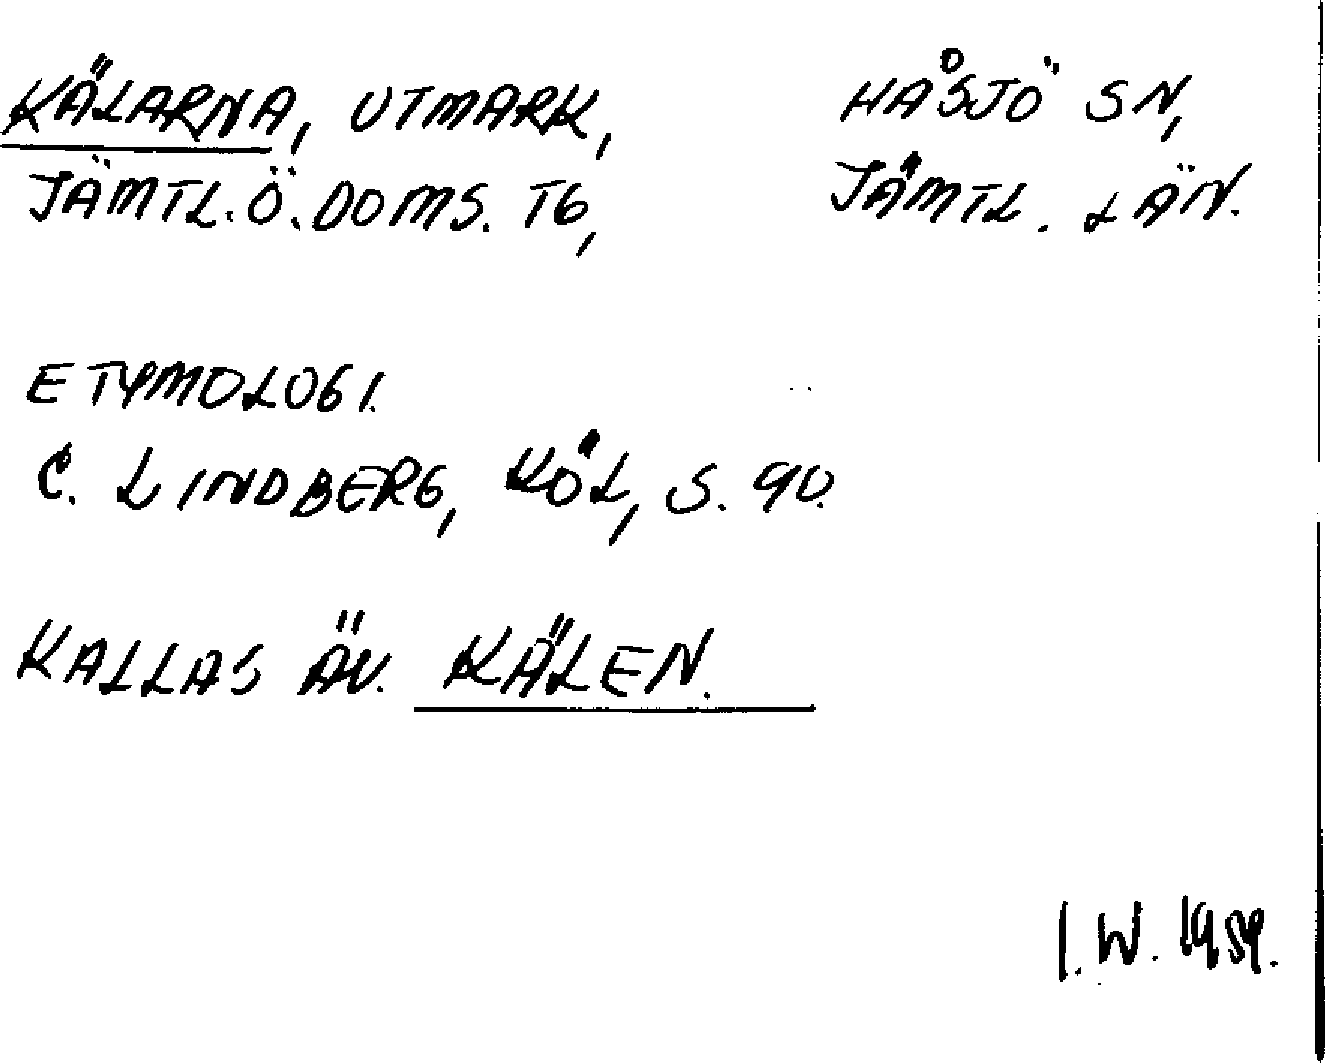 KÄLARNA, UTMARK, HÅSJÖ SN,
JÄMTL. Ö. DOMS. TG, JÄMTL. LÄN.
ETYMOLOGI.
C. LINDBERG, KÖL, S. 90.
KALLAS ÄV. KÄLEN.
I. W. 1959.